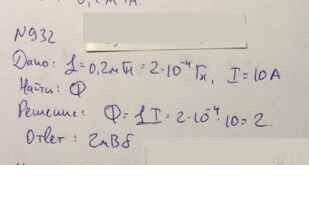 N932
Дано: L=0,2мГн=2·10⁻⁴Гн, I=10А
Найти: Ф
Решение: Ф=LI=2·10⁻⁴·10=2
Ответ: 2мВб